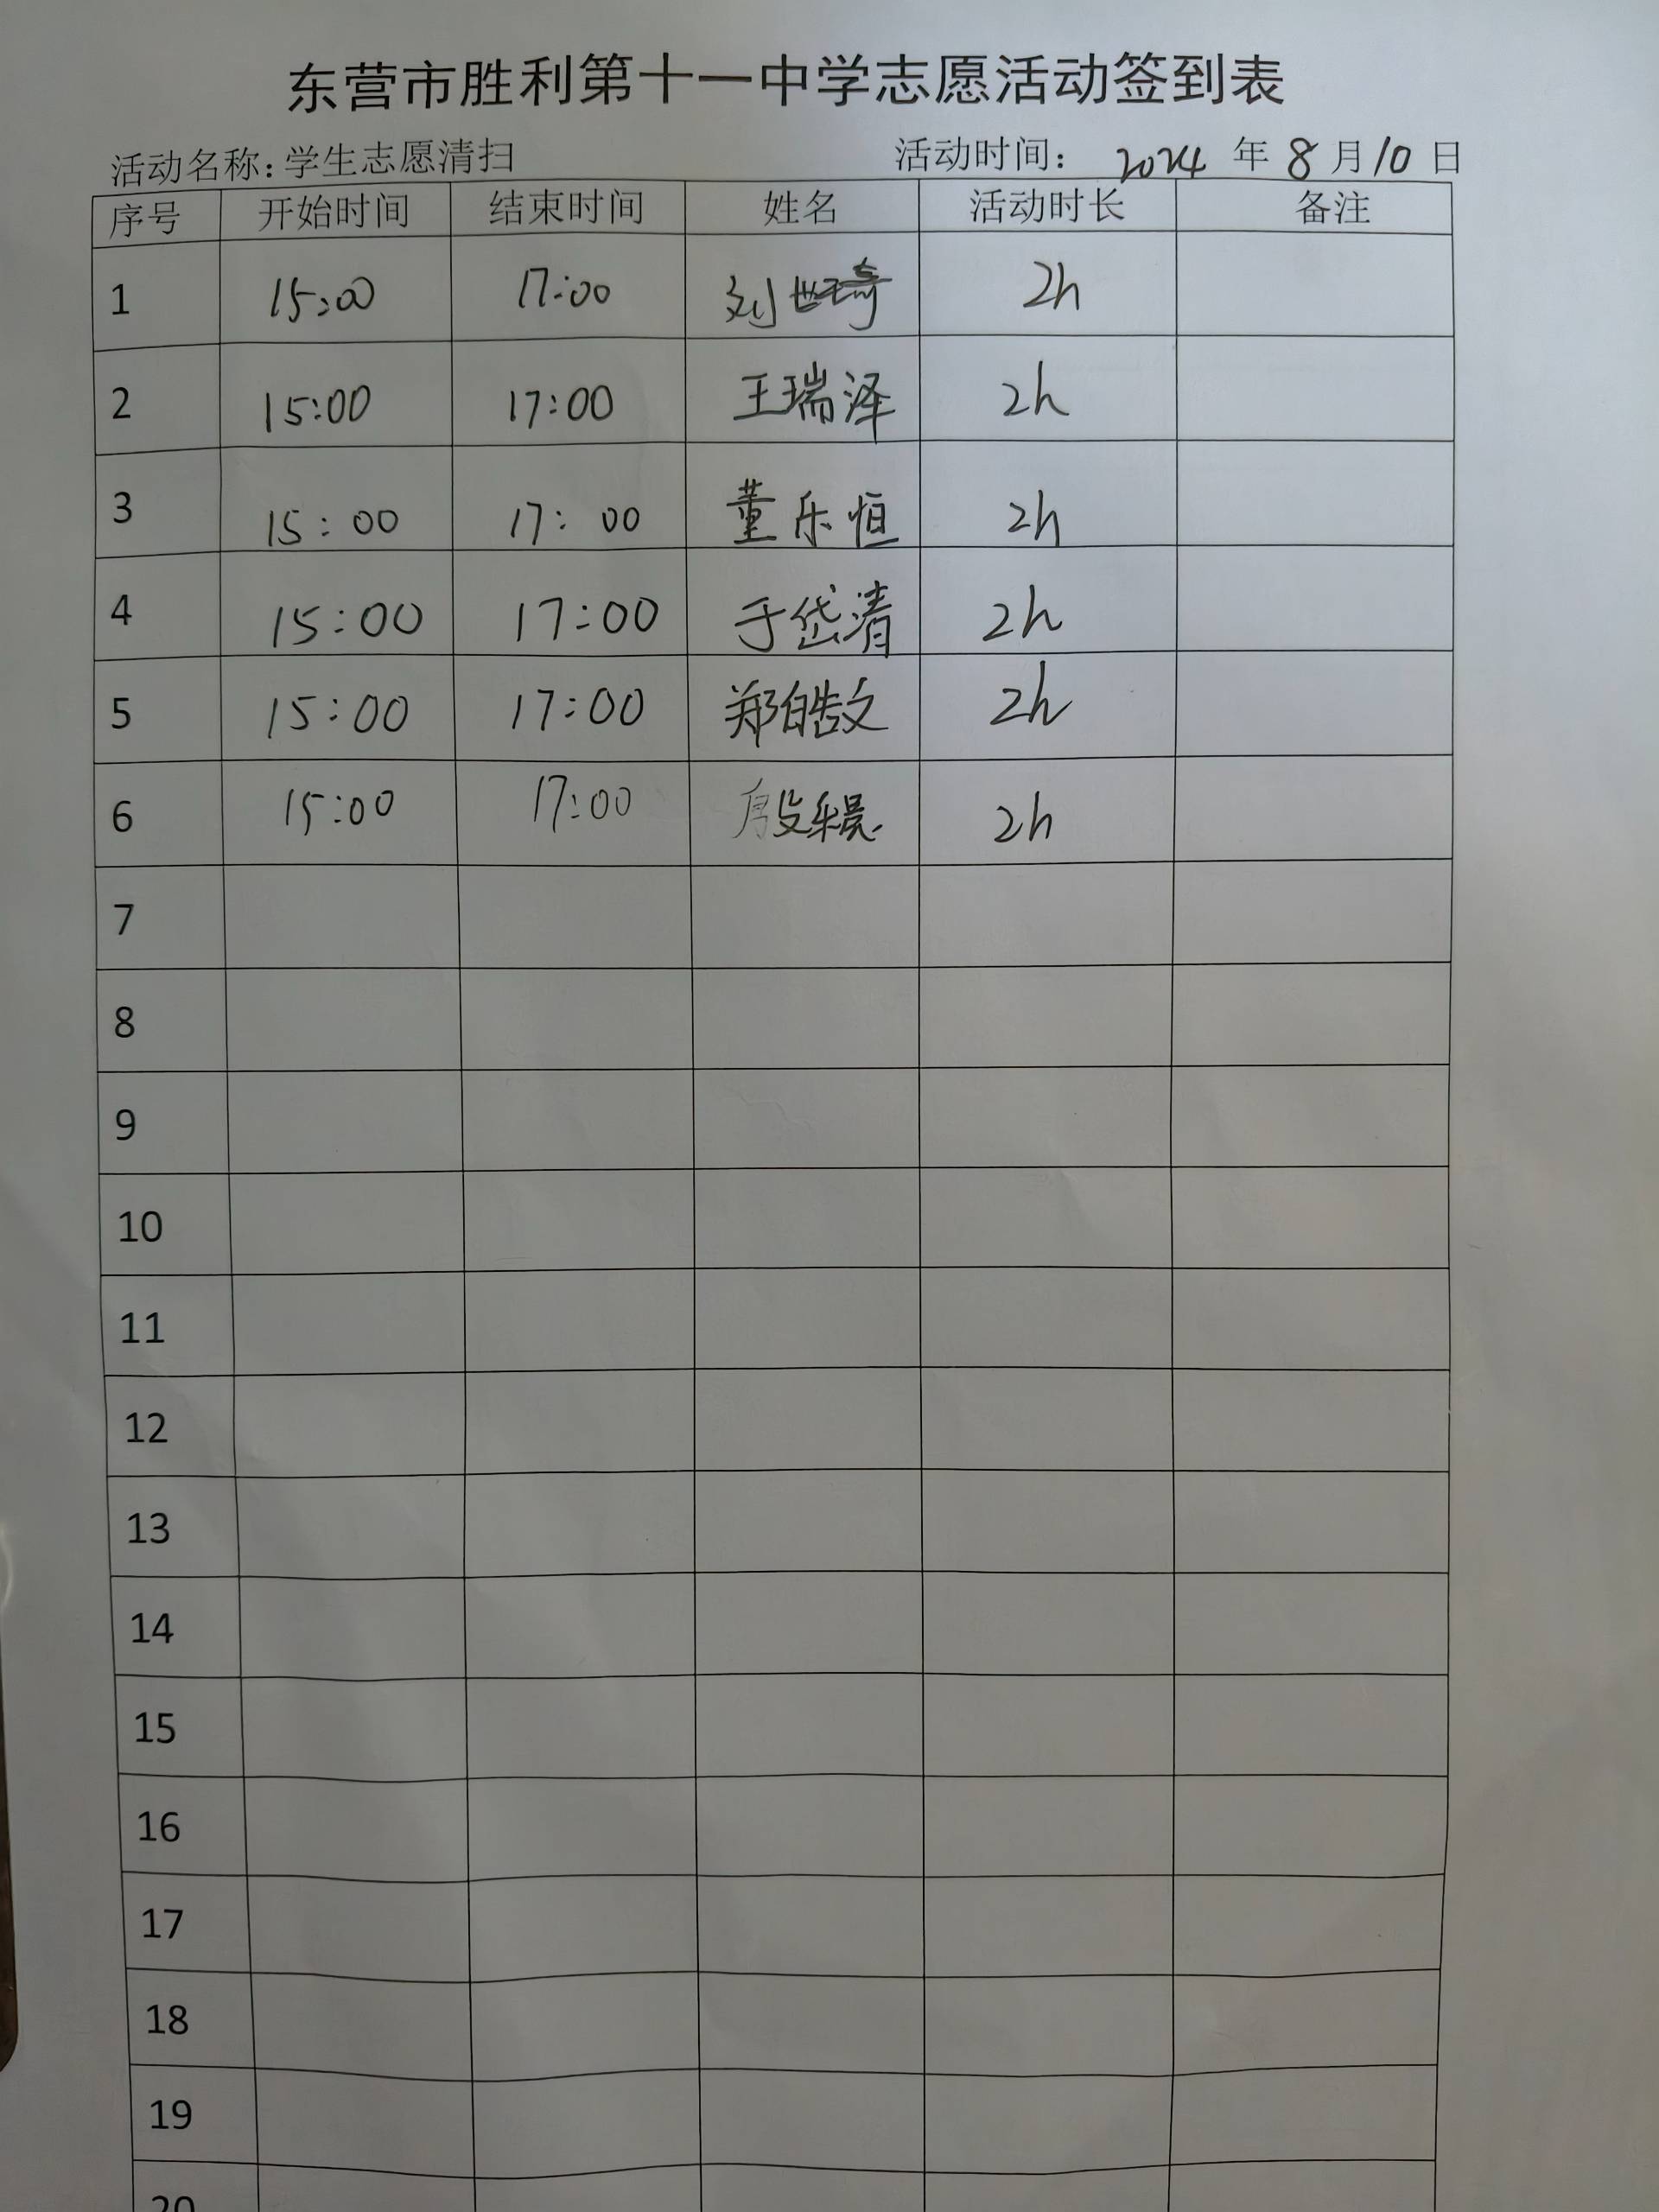 东营市胜利第十一中学志愿活动签到表
活动名称：学生志愿清扫 活动时间： 2024 年 8 月 10 日
序号 开始时间 结束时间 姓名 活动时长 备注
1 15:00 17:00 刘世琦 2h
2 15:00 17:00 王瑞泽 2h
3 15:00 17:00 董乐恒 2h
4 15:00 17:00 于岱清 2h
5 15:00 17:00 郑皓文 2h
6 15:00 17:00 殷 2h
7
8
9
10
11
12
13
14
15
16
17
18
19
20